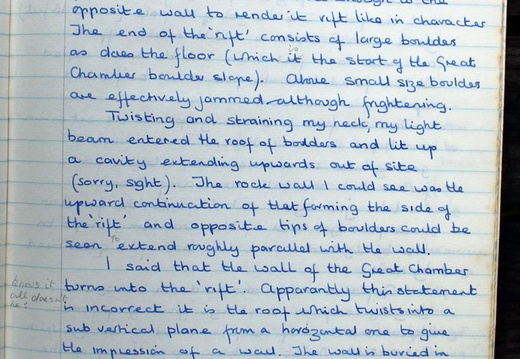 opposite wall to render it rift like in character
The end of the 'rift' consists of large boulders
as does the floor (which is it the start of the Great
Chamber boulder slope). Above small size boulders
are effectively jammed although frightening.
Twisting and straining my neck, my light
beam entered the roof of boulders and lit up
a cavity extending upwards out of site
(sorry, sight). The rock wall I could see was the
upward continuation of that forming the side of
the 'rift' and opposite tips of boulders could be
seen to extend roughly parcallel with the wall.
I said that the wall of the Great Chamber
knows it
all doesn't
he!
turns into the 'rift'. Apparantly this statement
is incorrect it is the roof which twists into a
sub vertical plane from a horozontal one to give
the impression of a wall. The wall is buried in